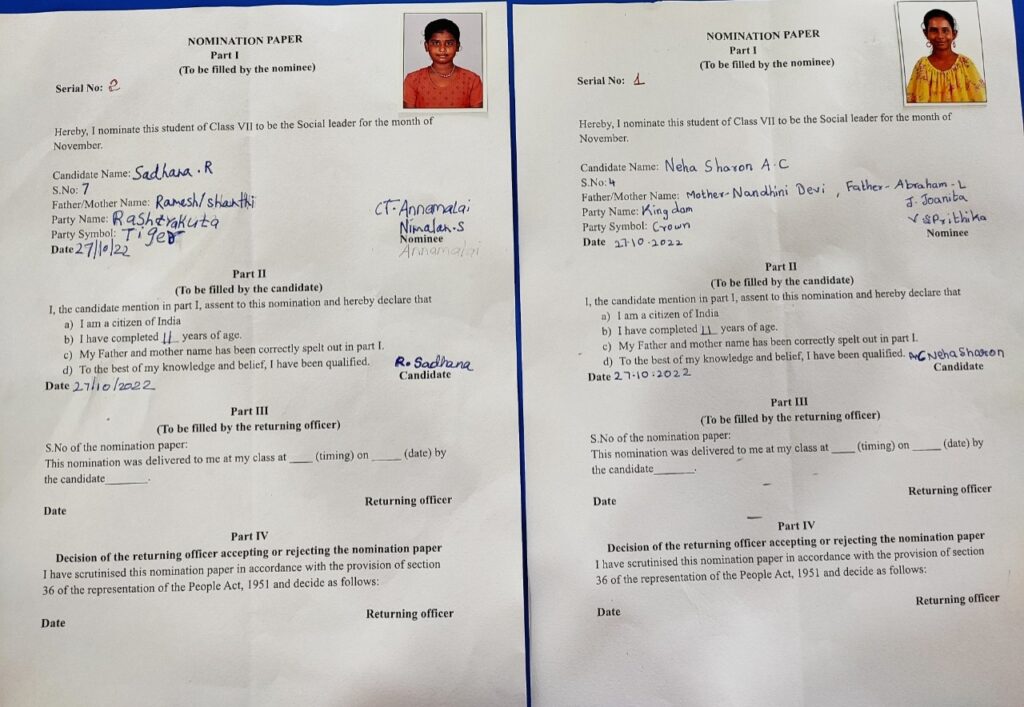 NOMINATION PAPER
Part I
(To be filled by the nominee)
Serial No: 2
Hereby, I nominate this student of Class VII to be the Social leader for the month of
November.
Candidate Name: Sadhana . R
S.No: 7
Father/Mother Name: Ramesh/shanthi
Party Name: Rashtrakuta
Party Symbol: Tiger
Date 27/10/22
CT. Annamalai
Nirmalan.S
Nominee
Annamalai
Part II
(To be filled by the candidate)
I, the candidate mention in part I, assent to this nomination and hereby declare that
a) I am a citizen of India
b) I have completed 11 years of age.
c) My Father and mother name has been correctly spelt out in part I.
d) To the best of my knowledge and belief, I have been qualified.
R. Sadhana
Candidate
Date 27/10/2022
Part III
(To be filled by the returning officer)
S.No of the nomination paper:
This nomination was delivered to me at my class at ____ (timing) on _____ (date) by
the candidate_______.
Returning officer
Date
Part IV
Decision of the returning officer accepting or rejecting the nomination paper
I have scrutinised this nomination paper in accordance with the provision of section
36 of the representation of the People Act, 1951 and decide as follows:
Returning officer
Date
NOMINATION PAPER
Part I
(To be filled by the nominee)
Serial No: 1
Hereby, I nominate this student of Class VII to be the Social leader for the month of
November.
Candidate Name: Neha Sharon A.C
S.No: 4
Father/Mother Name: Mother-Nandhini Devi , Father- Abraham.L
Party Name: Kingdom
Party Symbol: Crown
Date 27.10.2022
J. Joanita
V S Prithika
Nominee
Part II
(To be filled by the candidate)
I, the candidate mention in part I, assent to this nomination and hereby declare that
a) I am a citizen of India
b) I have completed 11 years of age.
c) My Father and mother name has been correctly spelt out in part I.
d) To the best of my knowledge and belief, I have been qualified.
AC Neha Sharon
Candidate
Date 27.10.2022
Part III
(To be filled by the returning officer)
S.No of the nomination paper:
This nomination was delivered to me at my class at ____ (timing) on _____ (date) by
the candidate_______.
Returning officer
Date
Part IV
Decision of the returning officer accepting or rejecting the nomination paper
I have scrutinised this nomination paper in accordance with the provision of section
36 of the representation of the People Act, 1951 and decide as follows:
Returning officer
Date